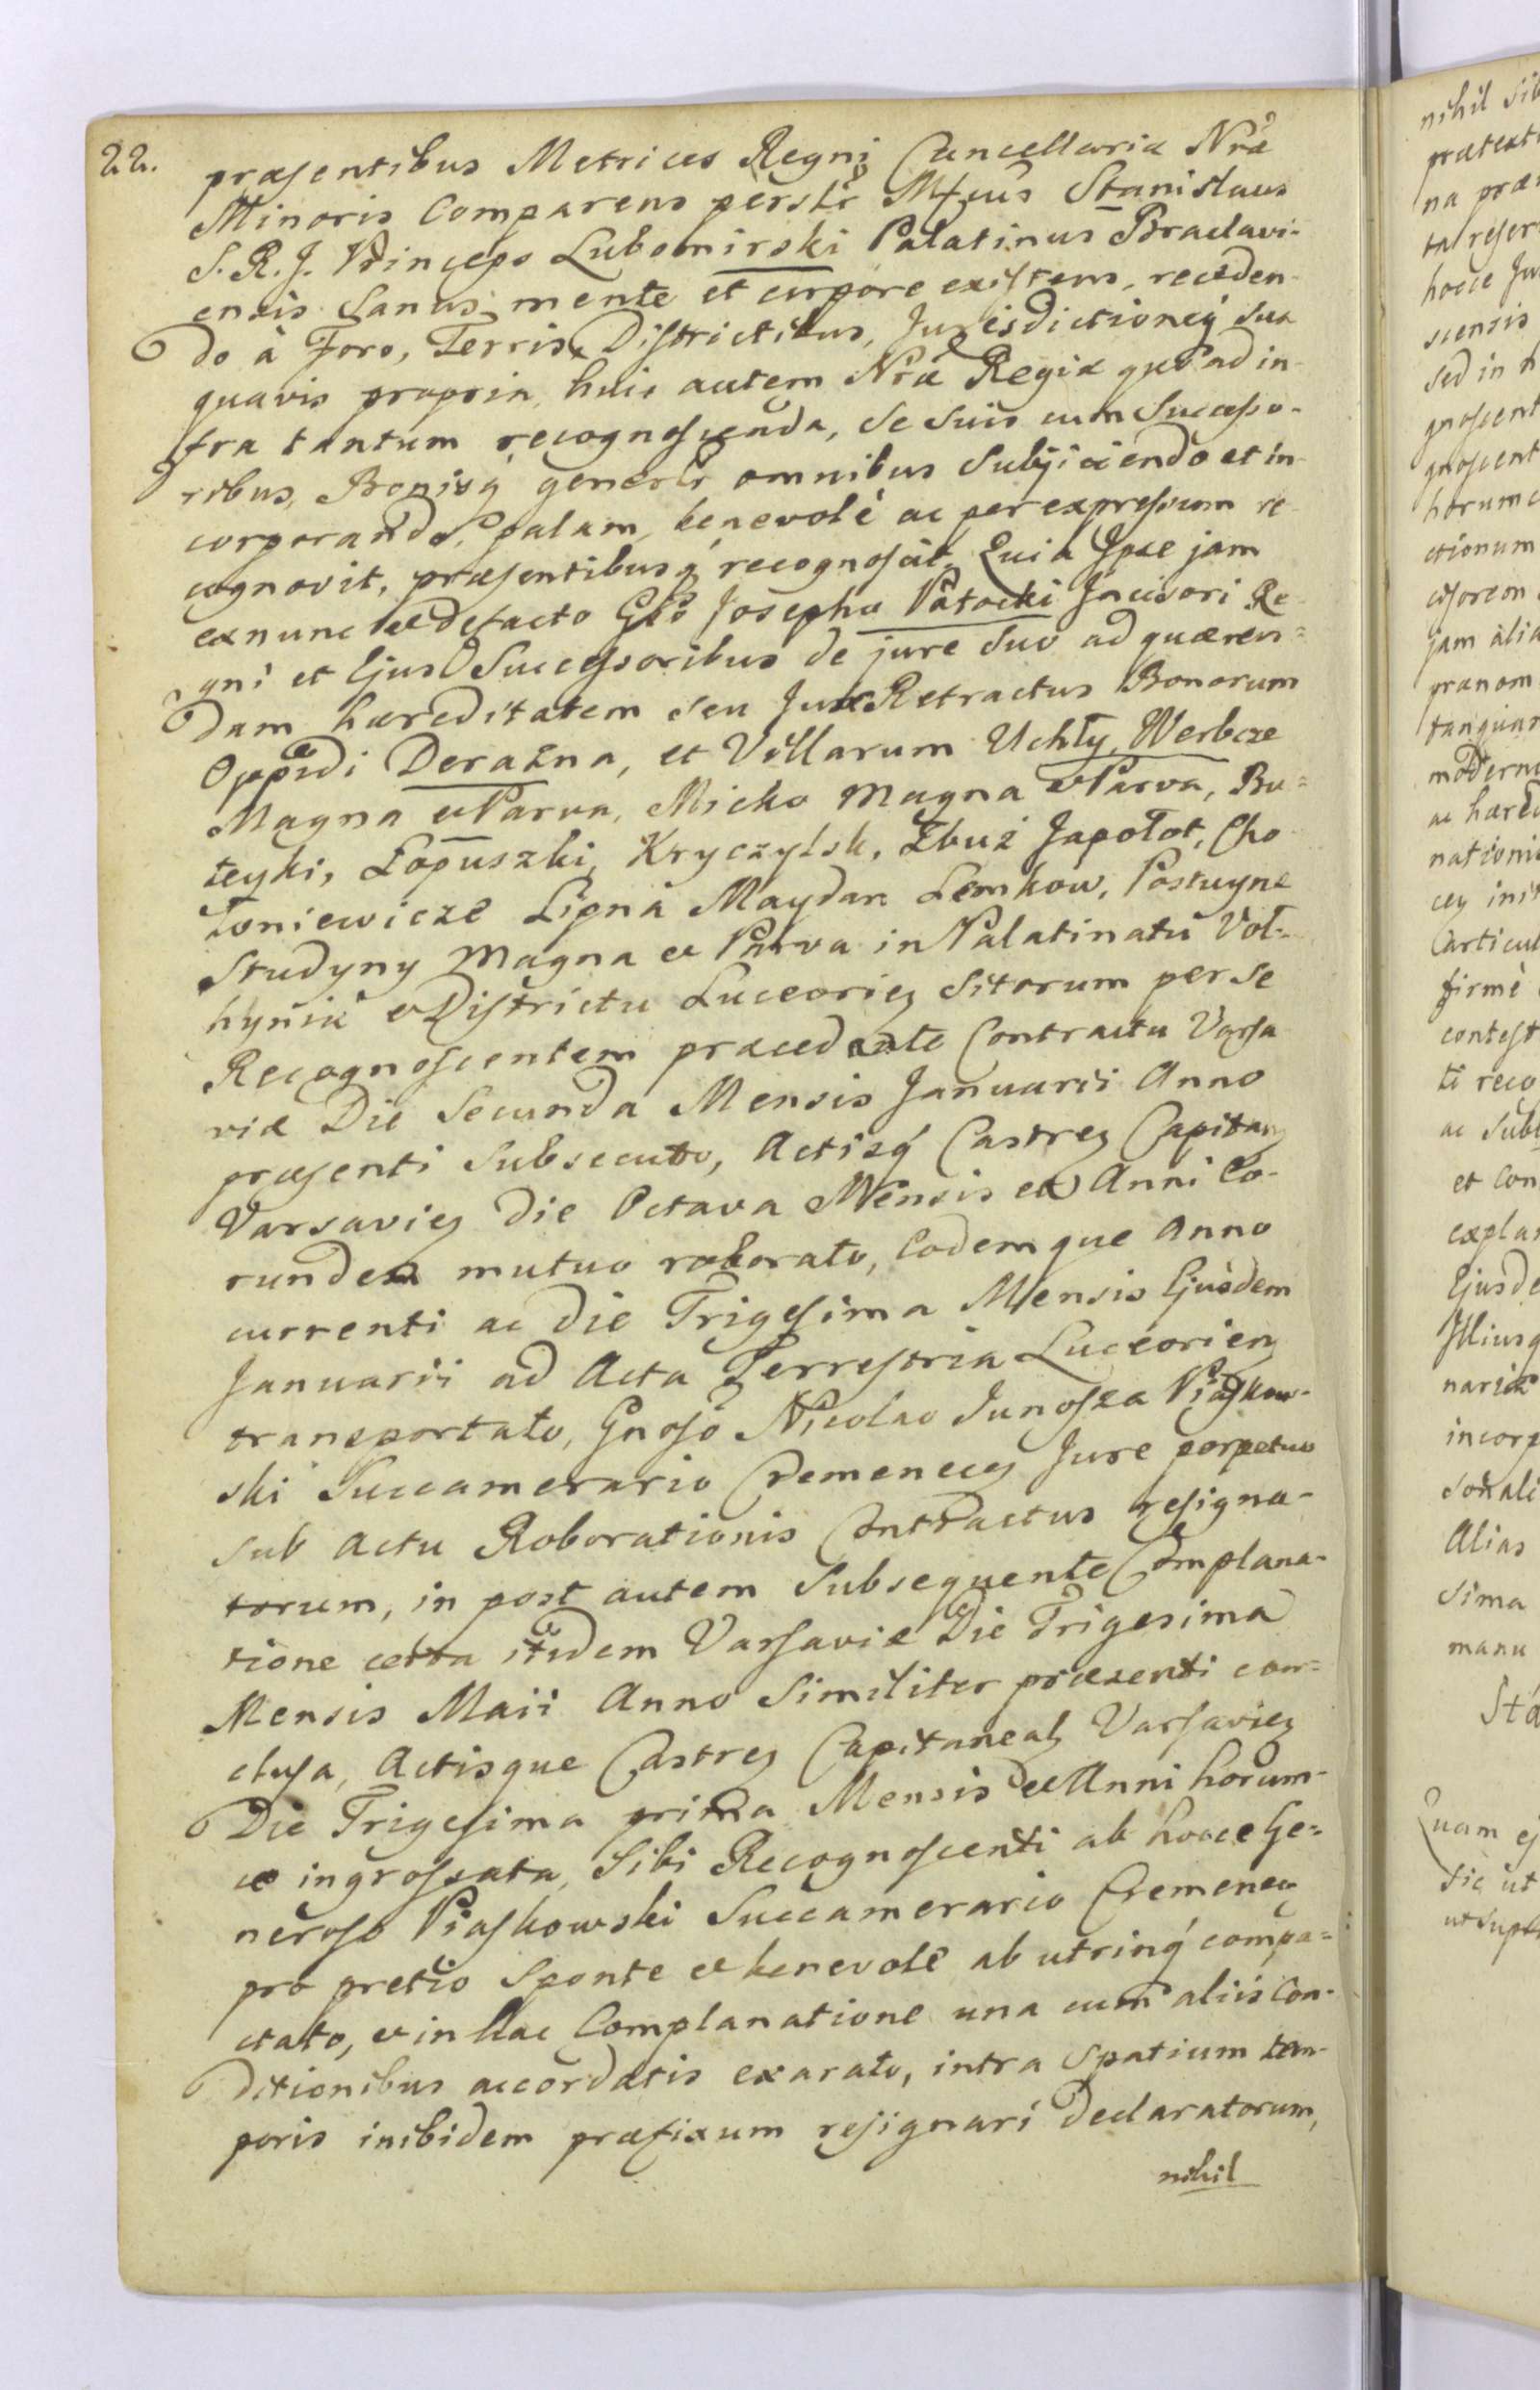 22.
præsentibus Metrices Regni Cancellariæ Nræ
Minoris Comparens persłr Mfcus Stanislaus
S. R. J. Princeps Lubomirski Palatinus Braclavi-
ensis Sanus mente et corpore existens, receden-
do à Foro, Terris, Districtibus, Jurisdictioneq sua
quavis propria, huic autem Nræ Regiæ quoad in-
fra tantum recognoscenda, se suis cum Successo-
ribus, Bonisq generłr omnibus Subjiciendo et in-
corporando, palam, benevolè ac per expressum re-
cognovit, præsentibusq recognoscit, Quia Ipse jam
exnunc et defacto Gso Josepho Potocki Incisori Re-
gni et Ejus Successoribus de jure Suo ad quæren=
dam hæreditatem seu Jure Retractus Bonorum
Oppidi Derażna, et Villarum Uchły, Werbcze
Magna et Parva, Micko Magna et Parva, Bu=
teyki, Łopuszki, Kryczylsk, Zbuż Japołot, Cho-
toniewicze Lipna Maydan Lemkow, Postuyne
Studyny Magna et Parva in Palatinatu Vol-
hyniæ et Districtu Luceorien sitorum per se
Recognoscentem præcedente Contractu Varsa
viæ Die Secunda Mensis Januarii Anno
præsenti Subsecuto, Actisq Castren Capitan
Varsavien die Octava Mensis et Anni Eo-
rundem mutuo roborato, Eodemque Anno
currenti ac die Trigesima Mensis Ejusdem
Januarii ad Acta Terrestria Luceorien
transportato, Gnoso Nicolao Junosza Piaskow-
ski Succamerario Cremenecen Jure perpetuo
sub actu Roborationis Contractus resigna-
torum, in post autem Subsequente Complana-
tione certa itidem Varsaviæ Die Trigesima
Mensis Maii Anno Similiter præsenti con=
clusa, Actisque Castren Capitaneal Varsavien
Die Trigesima prima Mensis et Anni horum-
ce ingrossata, Sibi Recognoscenti ab hocce Ge=
neroso Piaskowski Succamerario Cremenecen
pro pretio Sponte et benevolè ab utrinq compa=
ctato, et in hac Complanatione una cum aliis Con-
ditionibus accordatis exarato, intra Spatium tem-
poris inibidem præfixum resignari declaratorum,
nihil